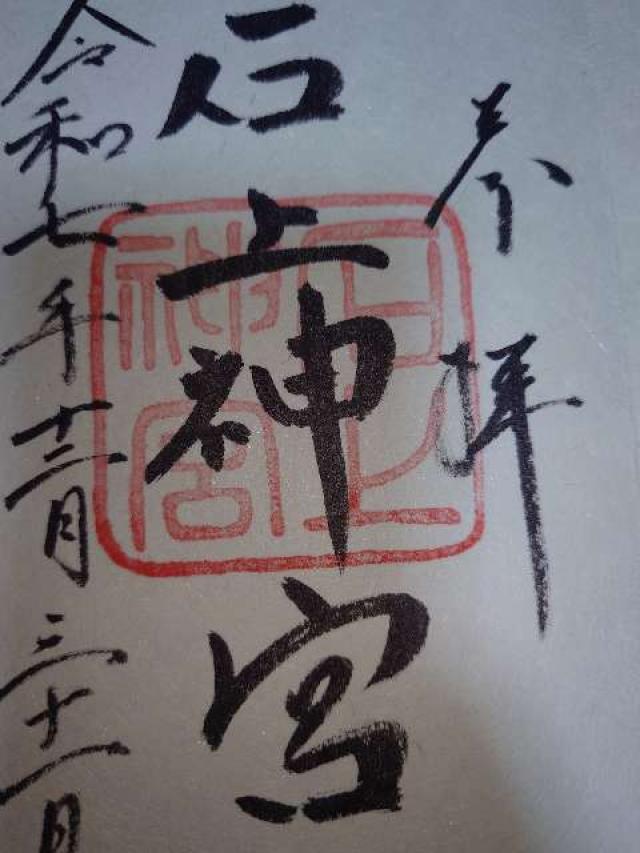 奉拝
石上神宮
令和七年十二月三十一日
石上
神宮